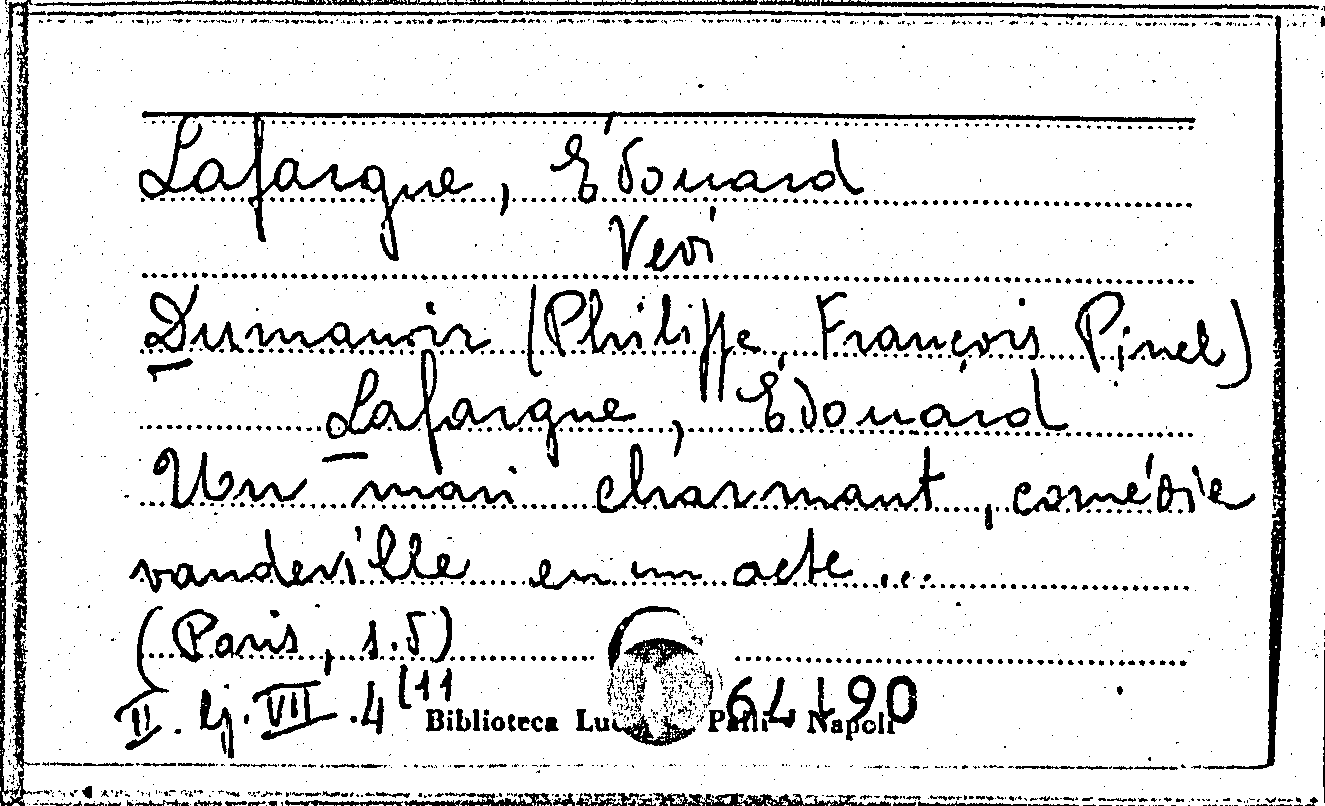 Lafargue, Édouard
Vedi
Dumanoir (Philippe, François Pinel)
Lafargue, Édouard
Un mari charmant, comédie
vaudeville en un acte...
(Paris, s.d)
II. Lj. VII. 4(11
64190
Biblioteca Palli - Napoli